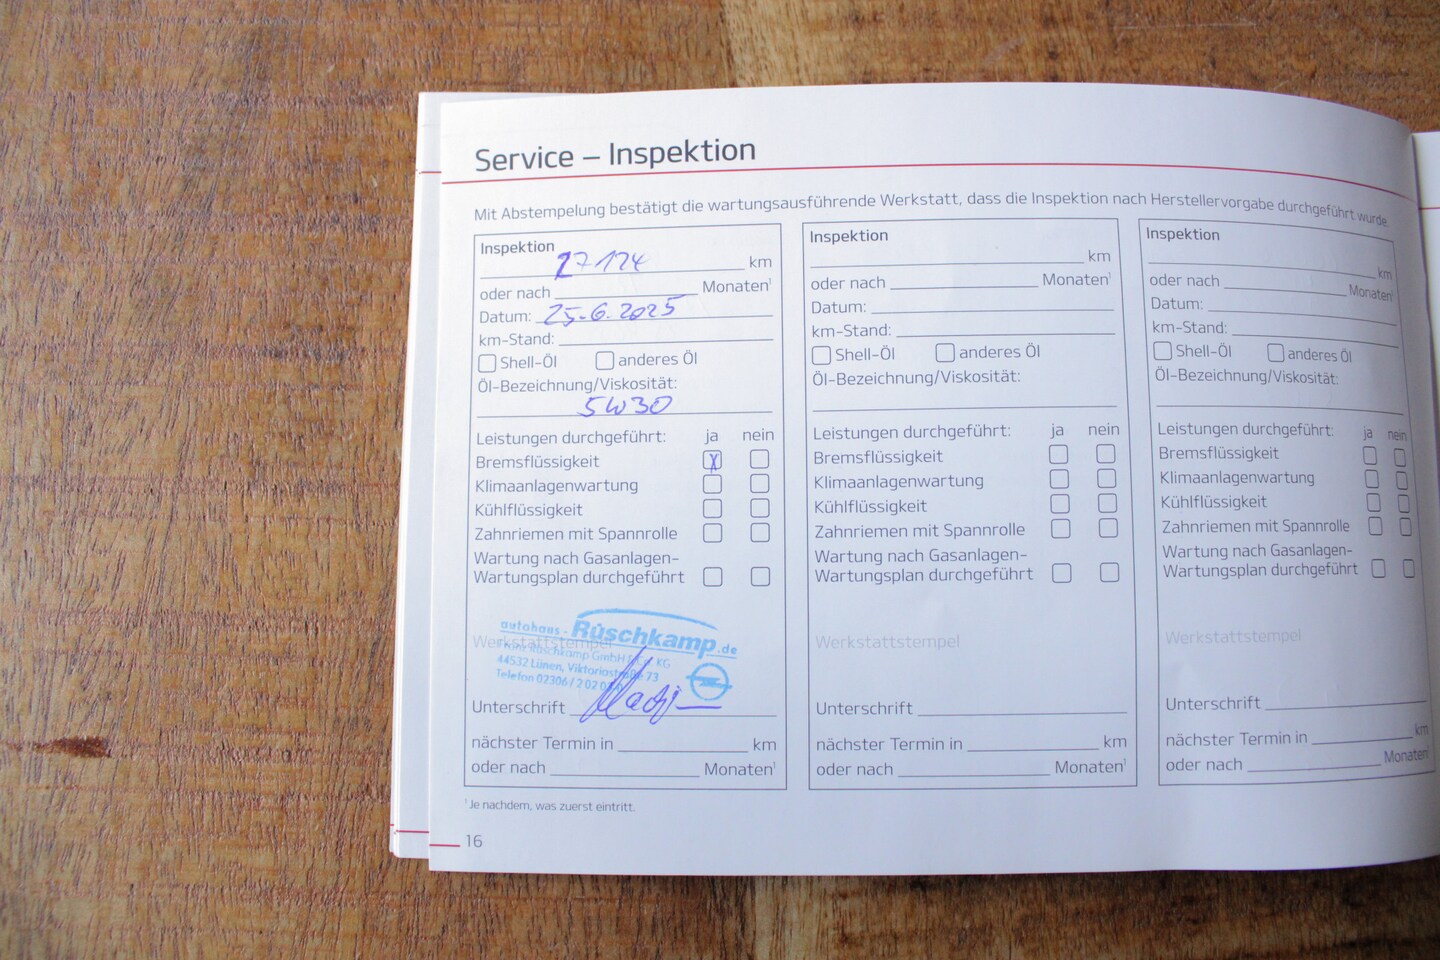 Service – Inspektion
Mit Abstempelung bestätigt die wartungsausführende Werkstatt, dass die Inspektion nach Herstellervorgabe durchgeführt wurde.
Inspektion
27124 km
oder nach Monaten¹
Datum: 25.6.2025
km-Stand:
Shell-Öl anderes Öl
Öl-Bezeichnung/Viskosität:
5W30
Leistungen durchgeführt: ja nein
Bremsflüssigkeit X
Klimaanlagenwartung
Kühlflüssigkeit
Zahnriemen mit Spannrolle
Wartung nach Gasanlagen-
Wartungsplan durchgeführt
Werkstattstempel
autohaus-Rüschkamp.de
Rüschkamp GmbH & Co. KG
44532 Lünen, Viktoriastraße 73
Telefon 02306 / 2 02
Unterschrift
nächster Termin in km
oder nach Monaten¹
Inspektion
km
oder nach Monaten¹
Datum:
km-Stand:
Shell-Öl anderes Öl
Öl-Bezeichnung/Viskosität:
Leistungen durchgeführt: ja nein
Bremsflüssigkeit
Klimaanlagenwartung
Kühlflüssigkeit
Zahnriemen mit Spannrolle
Wartung nach Gasanlagen-
Wartungsplan durchgeführt
Werkstattstempel
Unterschrift
nächster Termin in km
oder nach Monaten¹
Inspektion
km
oder nach Monaten¹
Datum:
km-Stand:
Shell-Öl anderes Öl
Öl-Bezeichnung/Viskosität:
Leistungen durchgeführt: ja nein
Bremsflüssigkeit
Klimaanlagenwartung
Kühlflüssigkeit
Zahnriemen mit Spannrolle
Wartung nach Gasanlagen-
Wartungsplan durchgeführt
Werkstattstempel
Unterschrift
nächster Termin in km
oder nach Monaten¹
¹ Je nachdem, was zuerst eintritt.
16